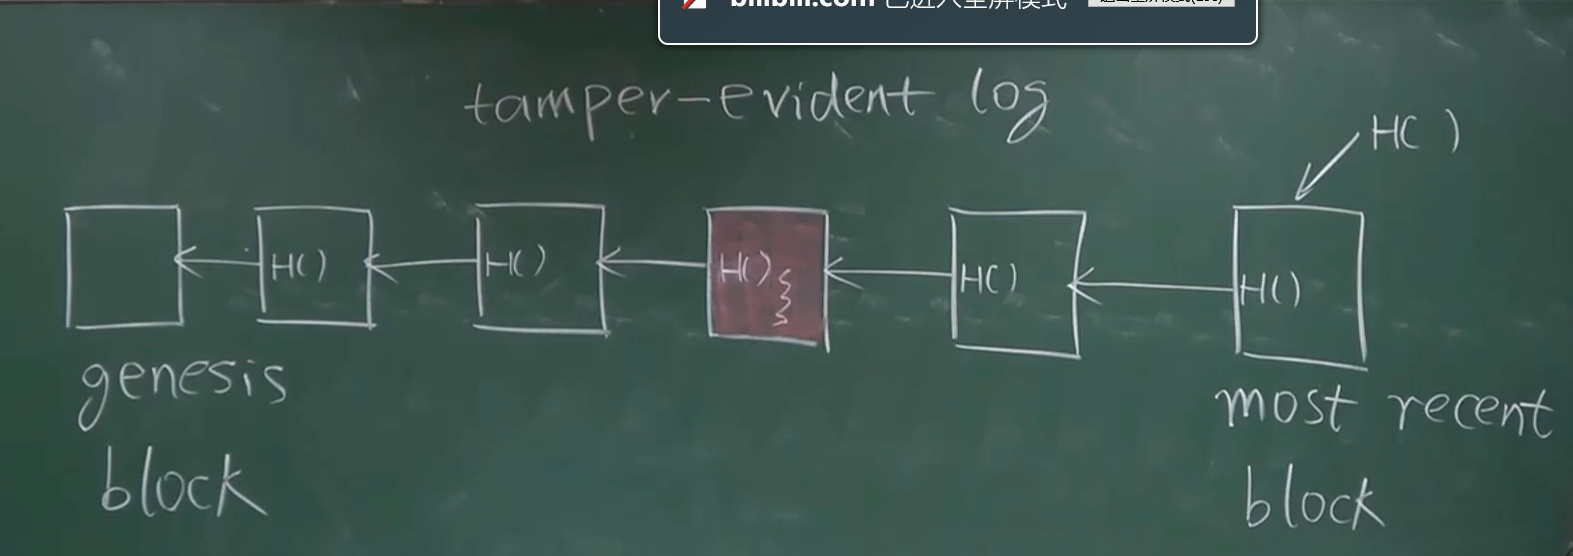 bilibili.com 已进入全屏模式
tamper-evident log
H( )
H( )
H( )
H( )
H( )
H( )
genesis
block
most recent
block